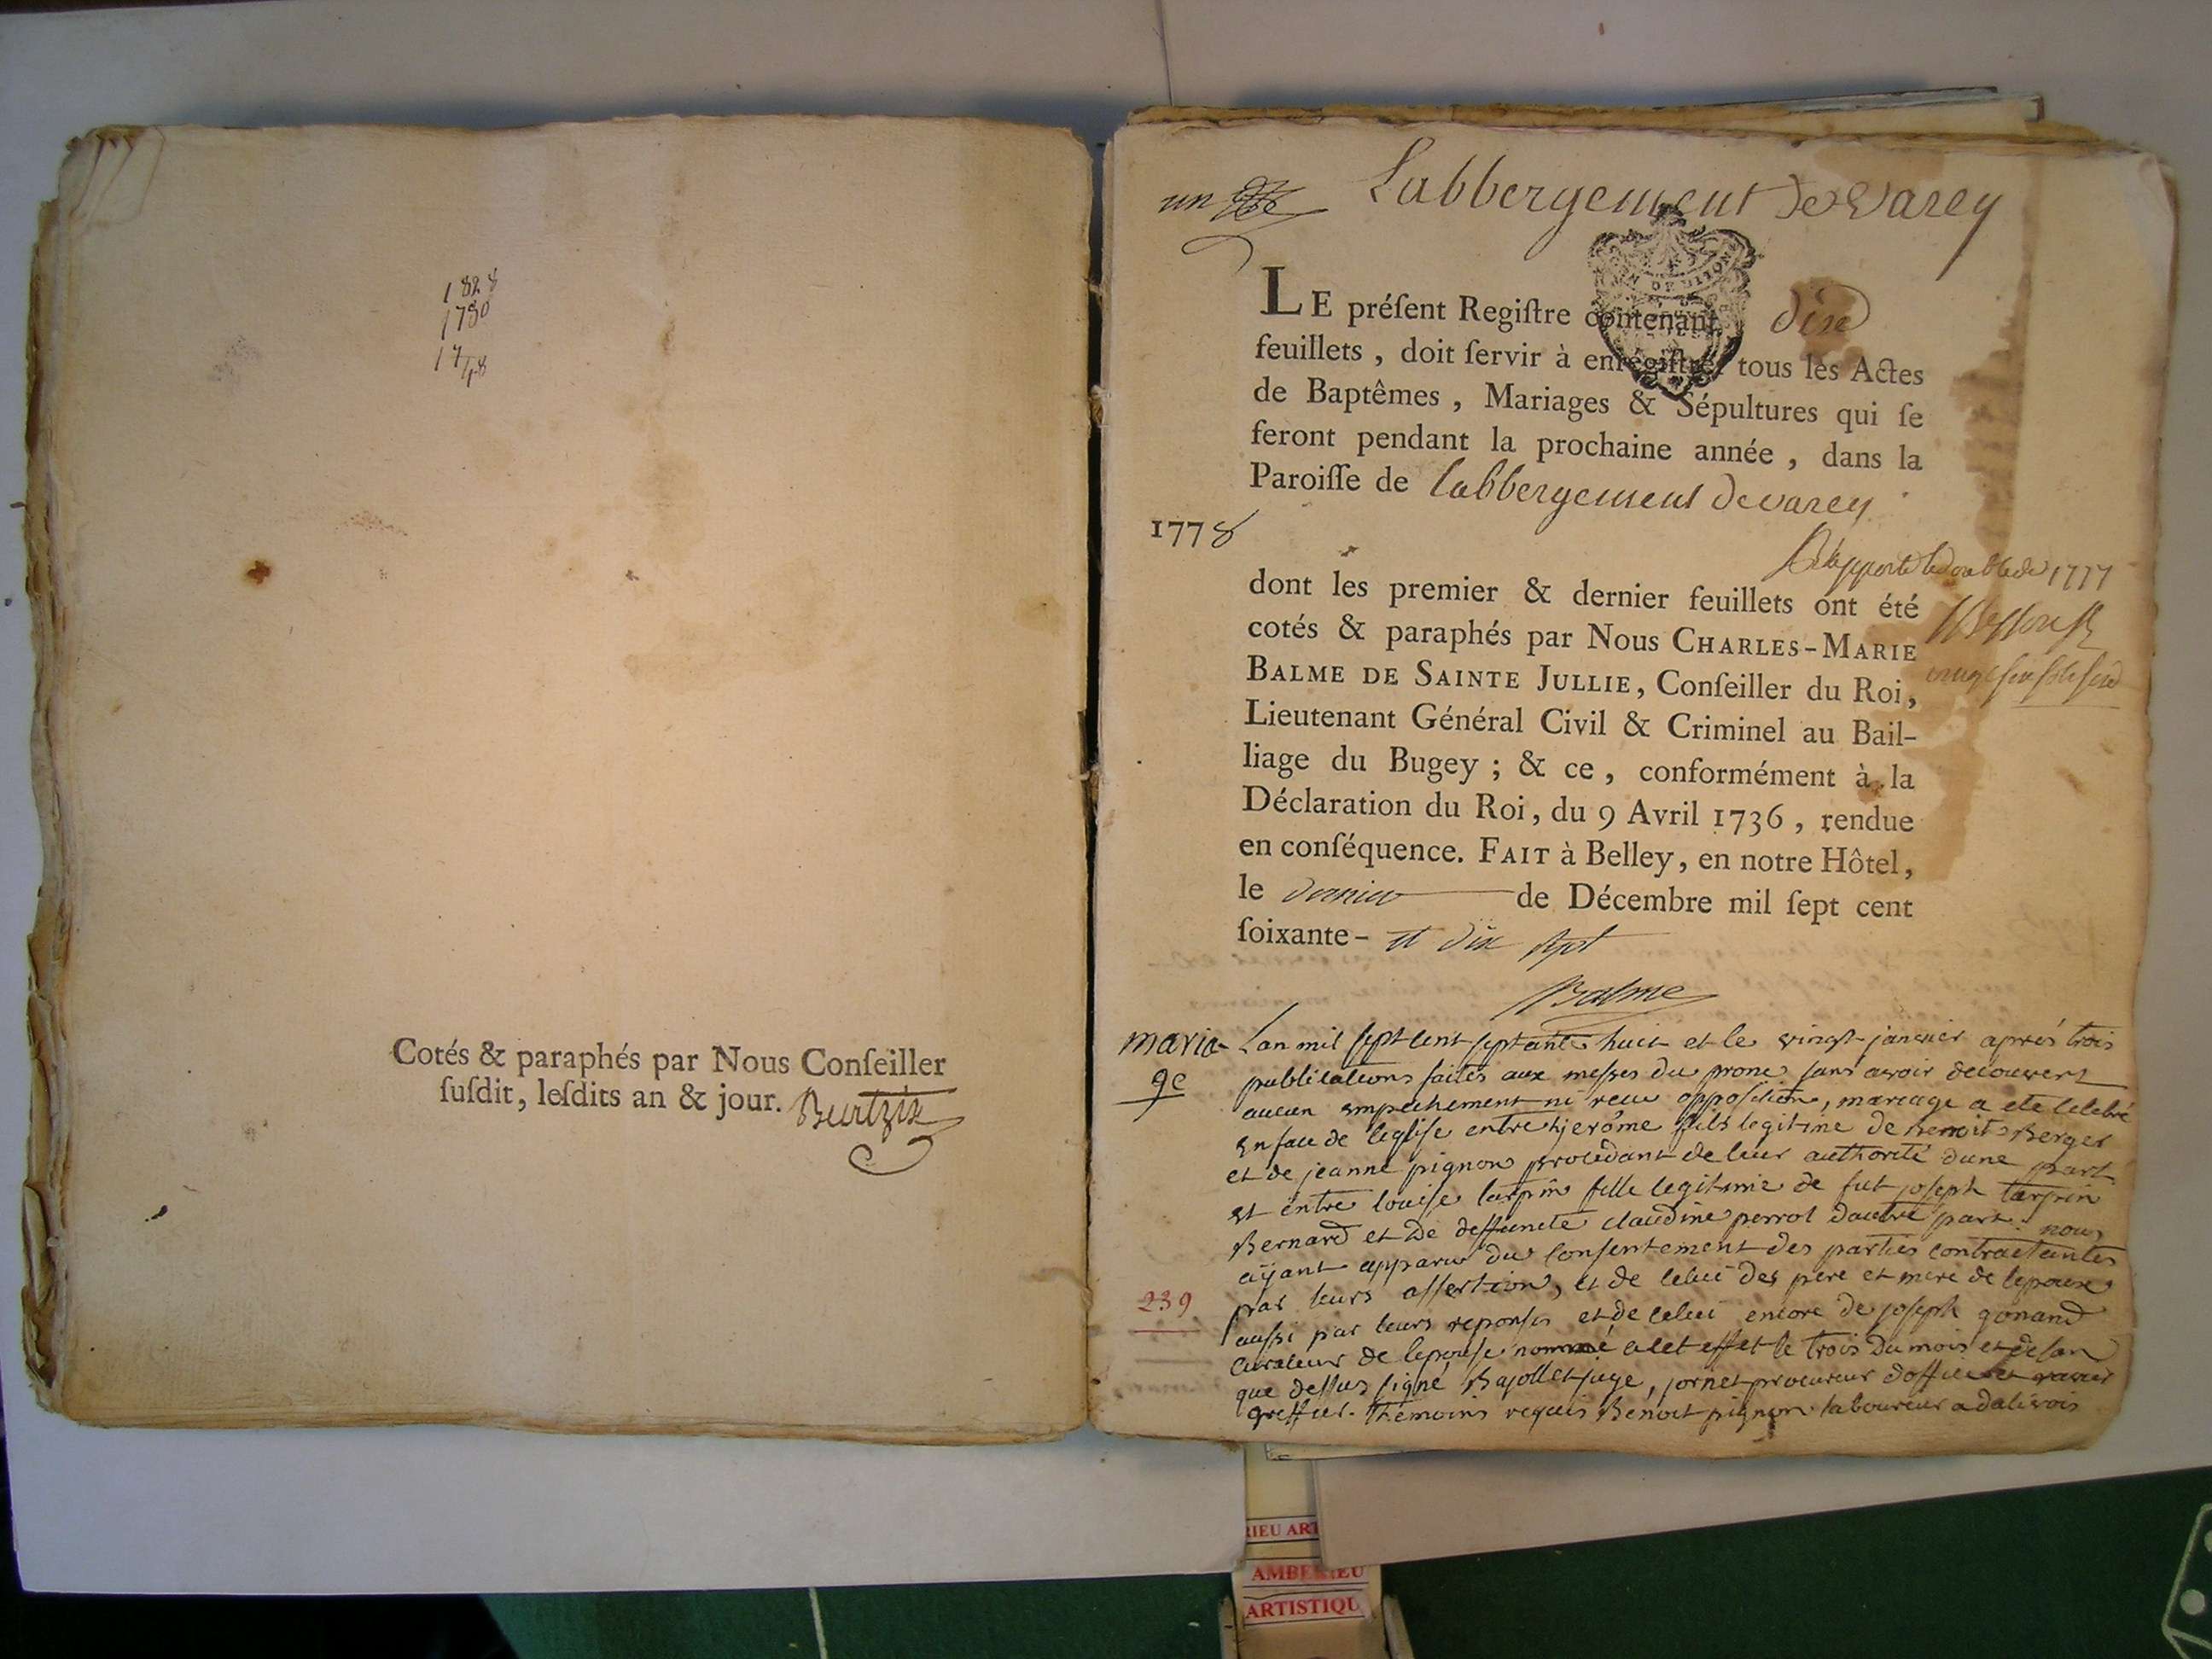 1828
1780
1748
Cotés & paraphés par Nous Conſeiller
ſuſdit, leſdits an & jour.
un
Labbergement De Varey
LE préſent Regiſtre contenant dix
feuillets, doit ſervir à enrégiſtrer tous les Actes
de Baptêmes, Mariages & Sépultures qui ſe
feront pendant la prochaine année, dans la
Paroiſſe de labbergement de varey
1778
Rapporté le double de 1777
dont les premier & dernier feuillets ont été
cotés & paraphés par Nous CHARLES-MARIE
BALME DE SAINTE JULLIE, Conſeiller du Roi,
Lieutenant Général Civil & Criminel au Bail-
liage du Bugey ; & ce, conformément à la
Déclaration du Roi, du 9 Avril 1736, rendue
en conſéquence. FAIT à Belley, en notre Hôtel,
le dernier de Décembre mil ſept cent
ſoixante- et dix sept
Balme
maria-
ge
Lan mil sept cent septante huit et le vingt janvier aprés trois
publications faites aux messes du prone sans avoir decouvert
aucun empechement ni reçu opposition, mariage a eté celebré
en face de leglise entre hjerôme fils legitime de benoit Berger
et de jeanne pignon procedant de leur authorité dune part
et entre louise tarpin fille legitime de fut joseph tarpin
Bernard et de deffuncte claudine perrot dautre part. nous
aÿant apparu du consentement des parties contractantes
par leurs assertion, et de celui des pere et mere de lepoux
239
aussi par leurs reponses et de celui encore de joseph gonand
curateur de lepouse nommé a cet effet le trois du mois et de lan
que dessus signé Bajollet juge, jornet procureur doffice et
greffier. themoins requis Benoit pignon laboureur a dalivois
RIEU ART
AMBERIEU
ARTISTIQU